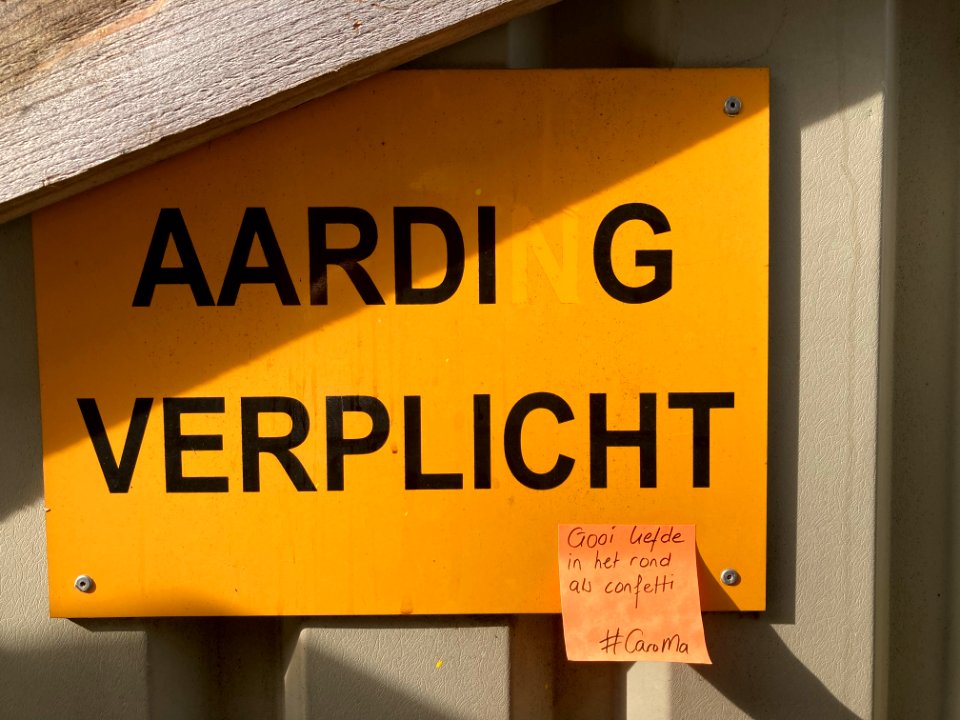 AARDI G
VERPLICHT
Gooi liefde
in het rond
als confetti
#CaroMa